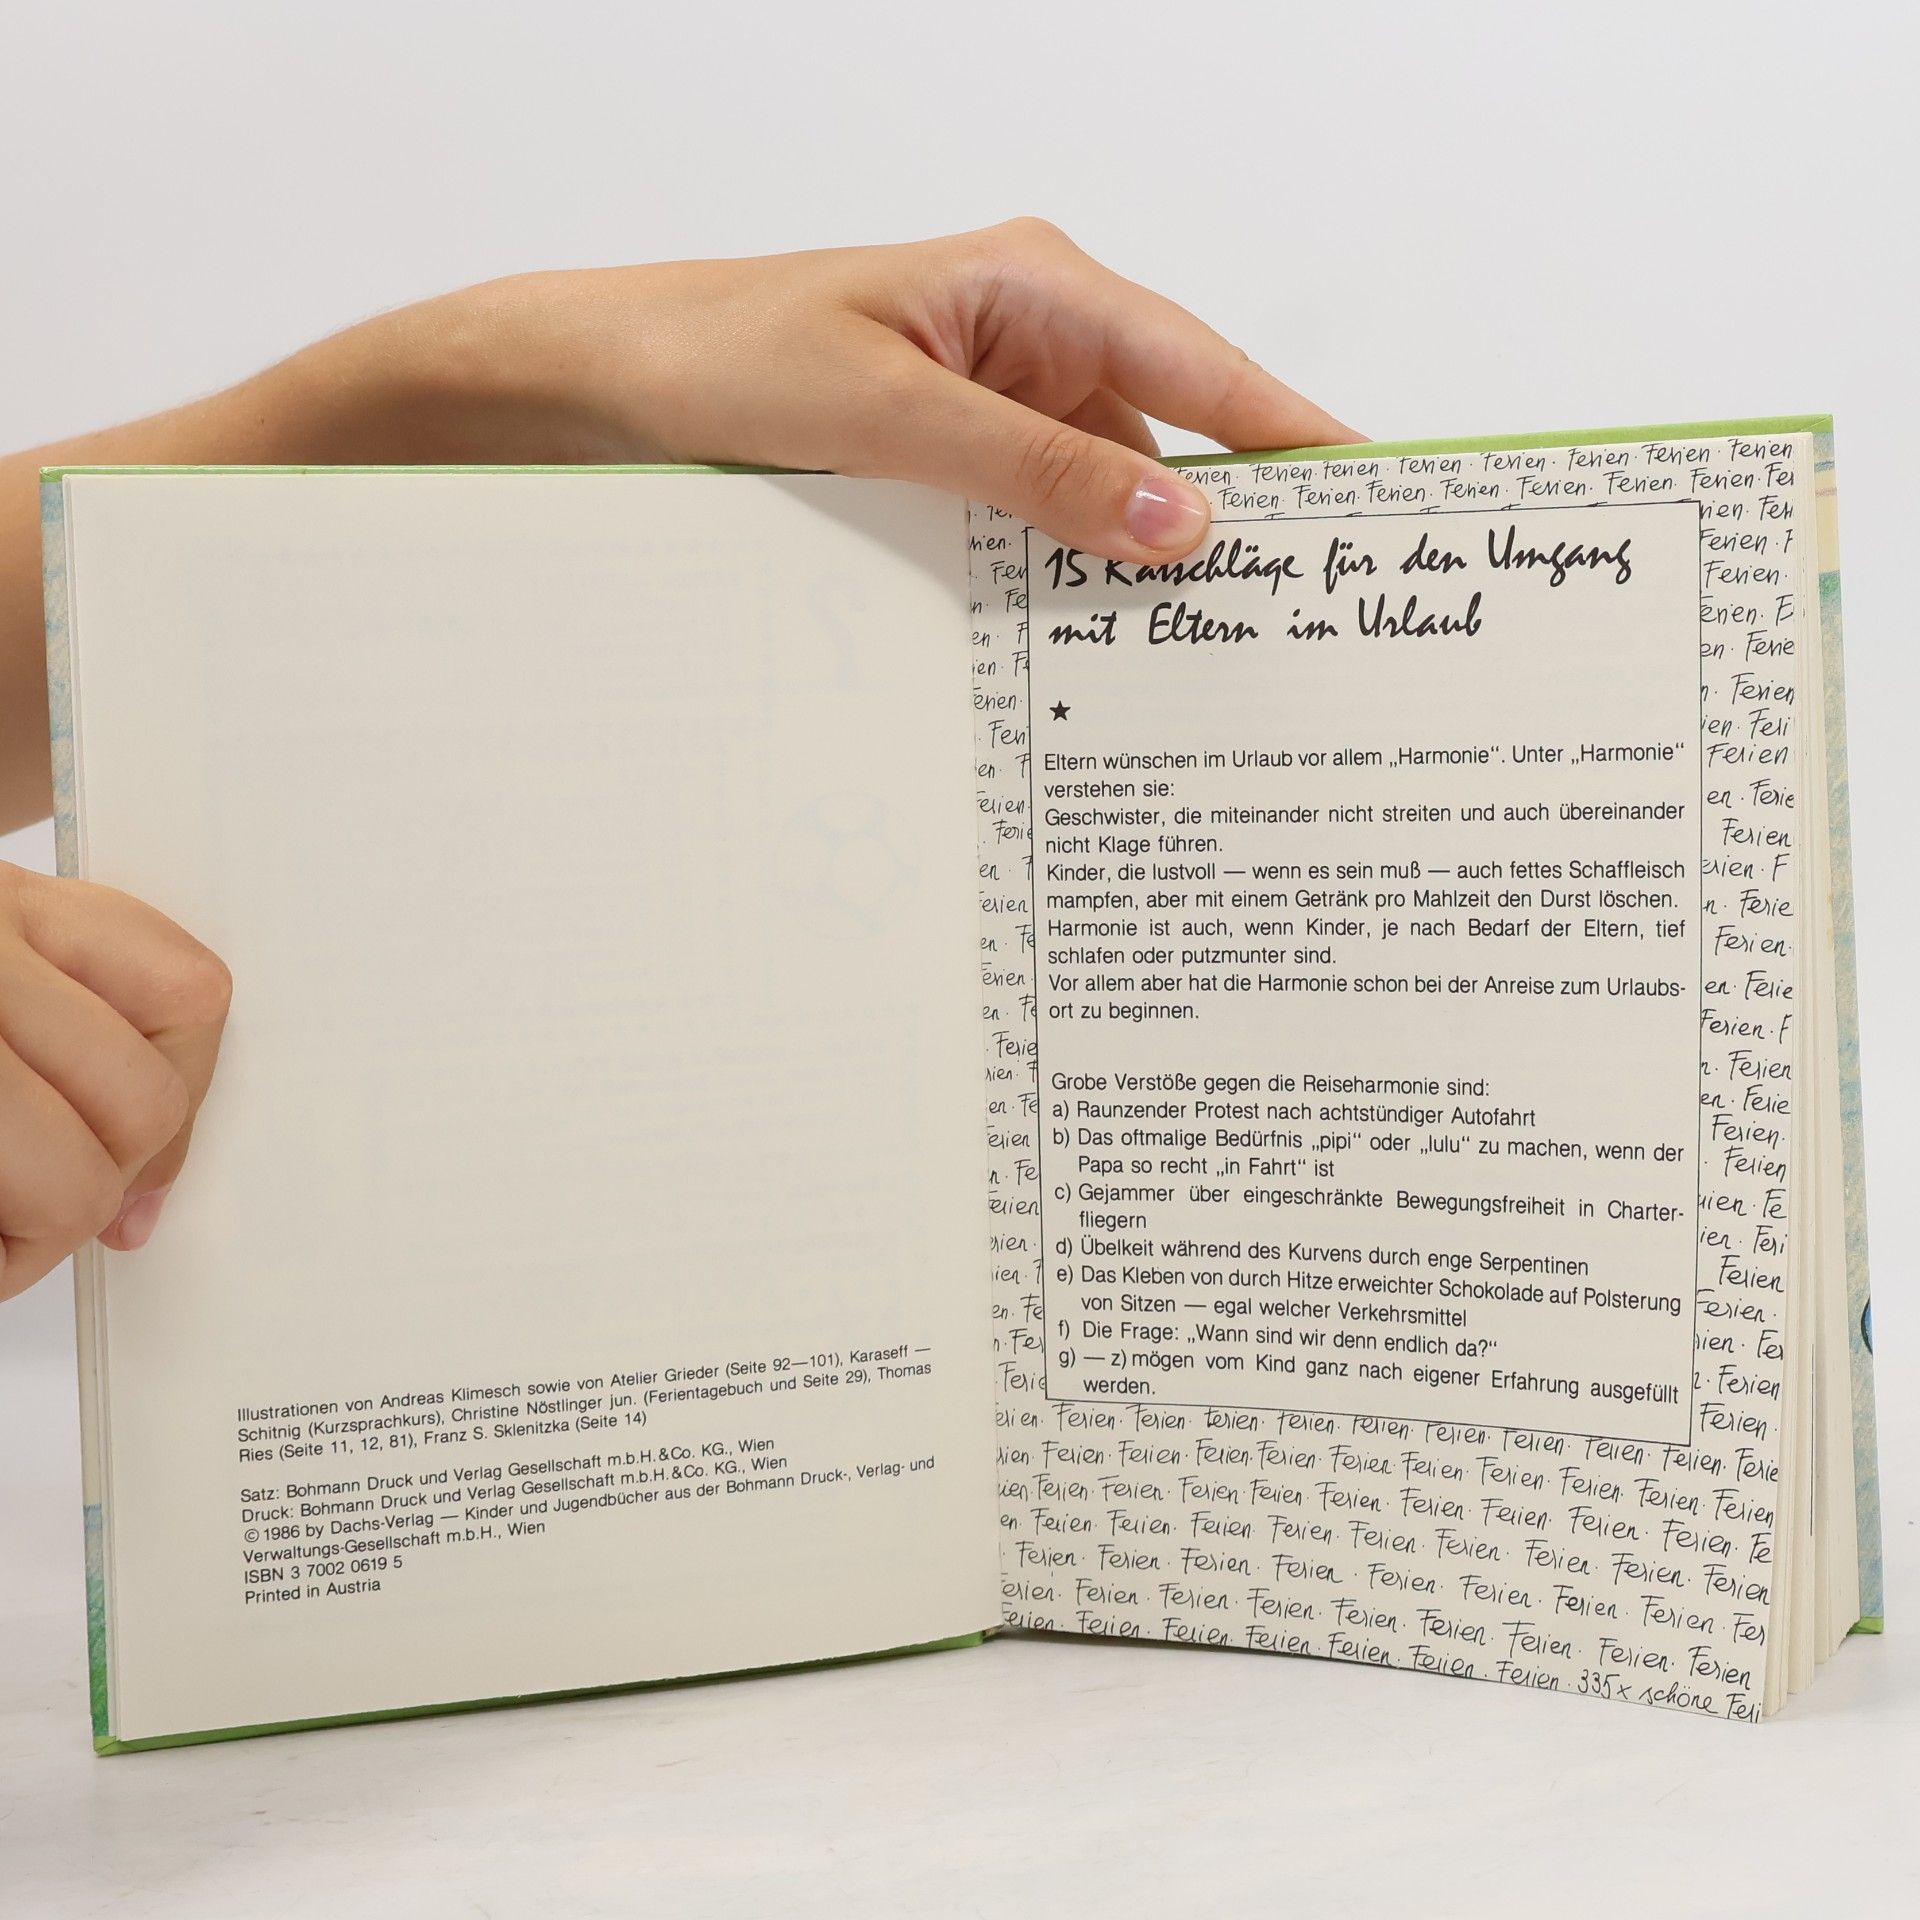 Illustrationen von Andreas Klimesch sowie von Atelier Grieder (Seite 92—101), Karaseff —
Schitnig (Kurzsprachkurs), Christine Nöstlinger jun. (Ferientagebuch und Seite 29), Thomas
Ries (Seite 11, 12, 81), Franz S. Sklenitzka (Seite 14)
Satz: Bohmann Druck und Verlag Gesellschaft m.b.H.&Co. KG., Wien
Druck: Bohmann Druck und Verlag Gesellschaft m.b.H.&Co. KG., Wien
© 1986 by Dachs-Verlag — Kinder und Jugendbücher aus der Bohmann Druck-, Verlag- und
Verwaltungs-Gesellschaft m.b.H., Wien
ISBN 3 7002 0619 5
Printed in Austria
Ferien · Ferien · Ferien · Ferien · Ferien · Ferien · Ferien
Ferien · Ferien · Ferien · Ferien · Ferien · Ferien · Ferien
15 Ratschläge für den Umgang
mit Eltern im Urlaub
★
Eltern wünschen im Urlaub vor allem „Harmonie“. Unter „Harmonie“
verstehen sie:
Geschwister, die miteinander nicht streiten und auch übereinander
nicht Klage führen.
Kinder, die lustvoll — wenn es sein muß — auch fettes Schaffleisch
mampfen, aber mit einem Getränk pro Mahlzeit den Durst löschen.
Harmonie ist auch, wenn Kinder, je nach Bedarf der Eltern, tief
schlafen oder putzmunter sind.
Vor allem aber hat die Harmonie schon bei der Anreise zum Urlaubs-
ort zu beginnen.
Grobe Verstöße gegen die Reiseharmonie sind:
a) Raunzender Protest nach achtstündiger Autofahrt
b) Das oftmalige Bedürfnis „pipi“ oder „lulu“ zu machen, wenn der
Papa so recht „in Fahrt“ ist
c) Gejammer über eingeschränkte Bewegungsfreiheit in Charter-
fliegern
d) Übelkeit während des Kurvens durch enge Serpentinen
e) Das Kleben von durch Hitze erweichter Schokolade auf Polsterung
von Sitzen — egal welcher Verkehrsmittel
f) Die Frage: „Wann sind wir denn endlich da?“
g) — z) mögen vom Kind ganz nach eigener Erfahrung ausgefüllt
werden.
Ferien · Ferien · Ferien · Ferien · Ferien · Ferien · Ferien · Ferien · Ferien
Ferien · Ferien · Ferien · Ferien · Ferien · Ferien · Ferien · Ferien · Ferien
Ferien · Ferien · Ferien · Ferien · Ferien · Ferien · Ferien · Ferien · Ferien
Ferien · Ferien · Ferien · Ferien · Ferien · Ferien · Ferien · Ferien
Ferien · Ferien · Ferien · Ferien · Ferien · Ferien · Ferien · Ferien · Ferien
Ferien · Ferien · Ferien · Ferien · Ferien · Ferien · Ferien · Ferien
Ferien · Ferien · Ferien · Ferien · Ferien · Ferien · Ferien · 335x schöne Feri